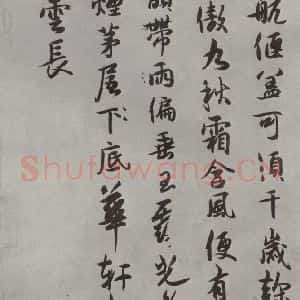 偃蓋可須千歲
傲九秋霜含風便有
帶雨偏垂玉露光
煙茅屋下底華軒
雲長
Shufawang.CN